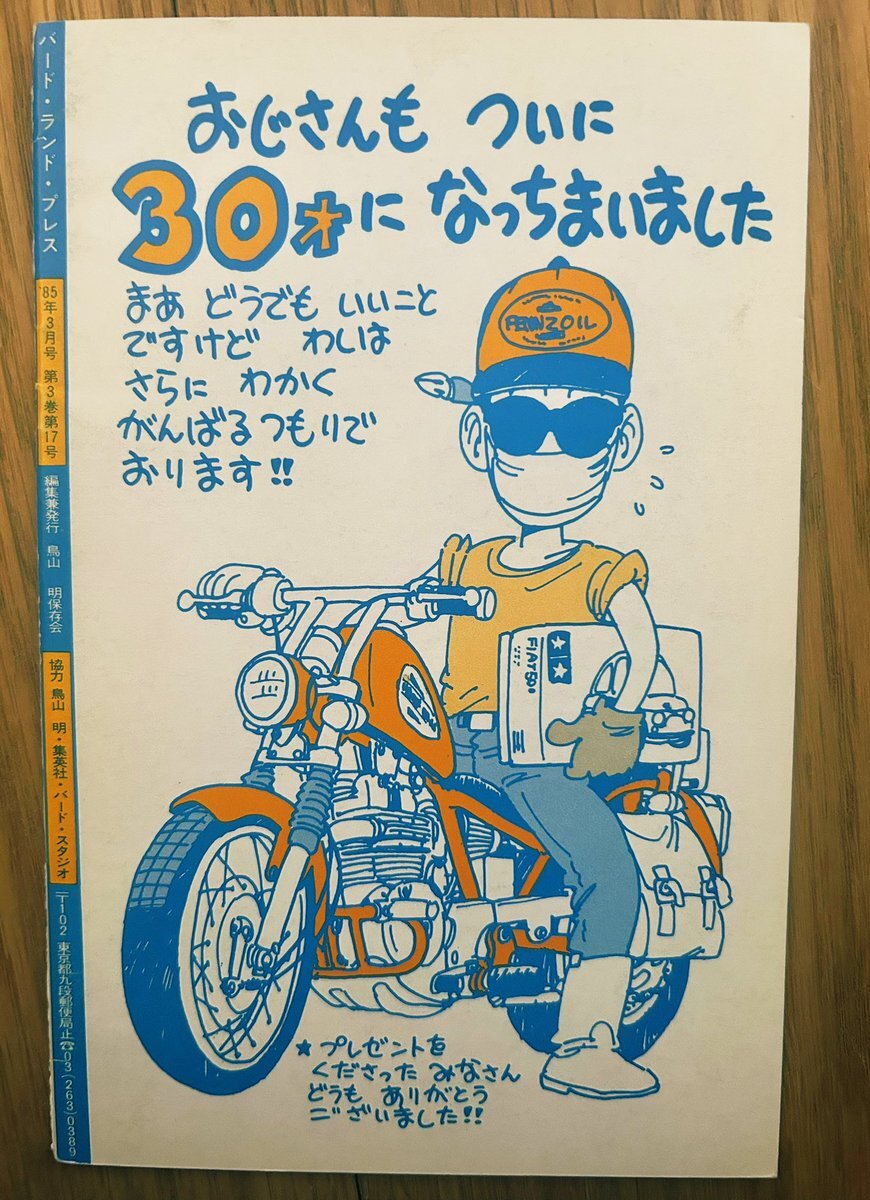 おじさんも ついに
30才に なっちまいました
まあ どうでも いいこと
ですけど わしは
さらに わかく
がんばるつもりで
おります!!
PENNZOIL
FIAT50
★プレゼントを
くださった みなさん
どうも ありがとう
ございました!!
バード・ランド・プレス
'85年3月号 第3巻第17号
編集兼発行 鳥山 明保存会
協力 鳥山 明・集英社・バード・スタジオ
〒102 東京都九段郵便局止☎03(263)0389